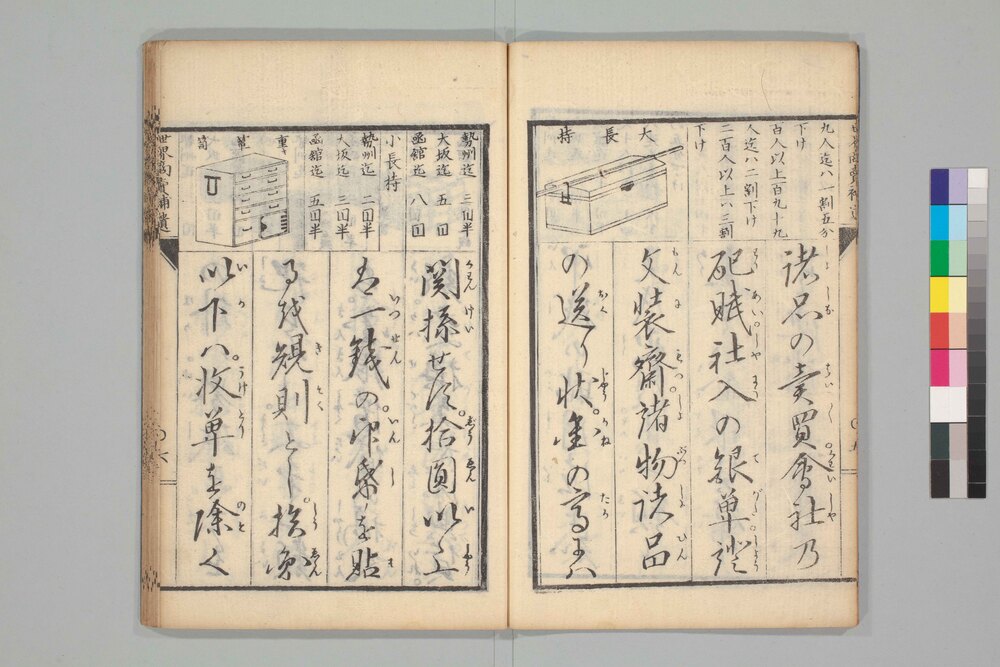 九人迄ハ一割五分
下け
百人以上百九十九
人迄ハ二割下け
二百人以上ハ三割
下け
大長持
諸品の賣買會社乃
賦社入の銀単證
文装齋諸物諸品
の送り状金の高よハ
勢州迄 三回半
大坂迄 五回
函館迄 八回
小長持
勢州迄 二回半
大坂迄 三回半
函館迄 五回半
重箪笥
関係せす拾圓以上
一銭の印紙を貼
る越規則とし
以下ハ收単を除く
世界商賣補遺